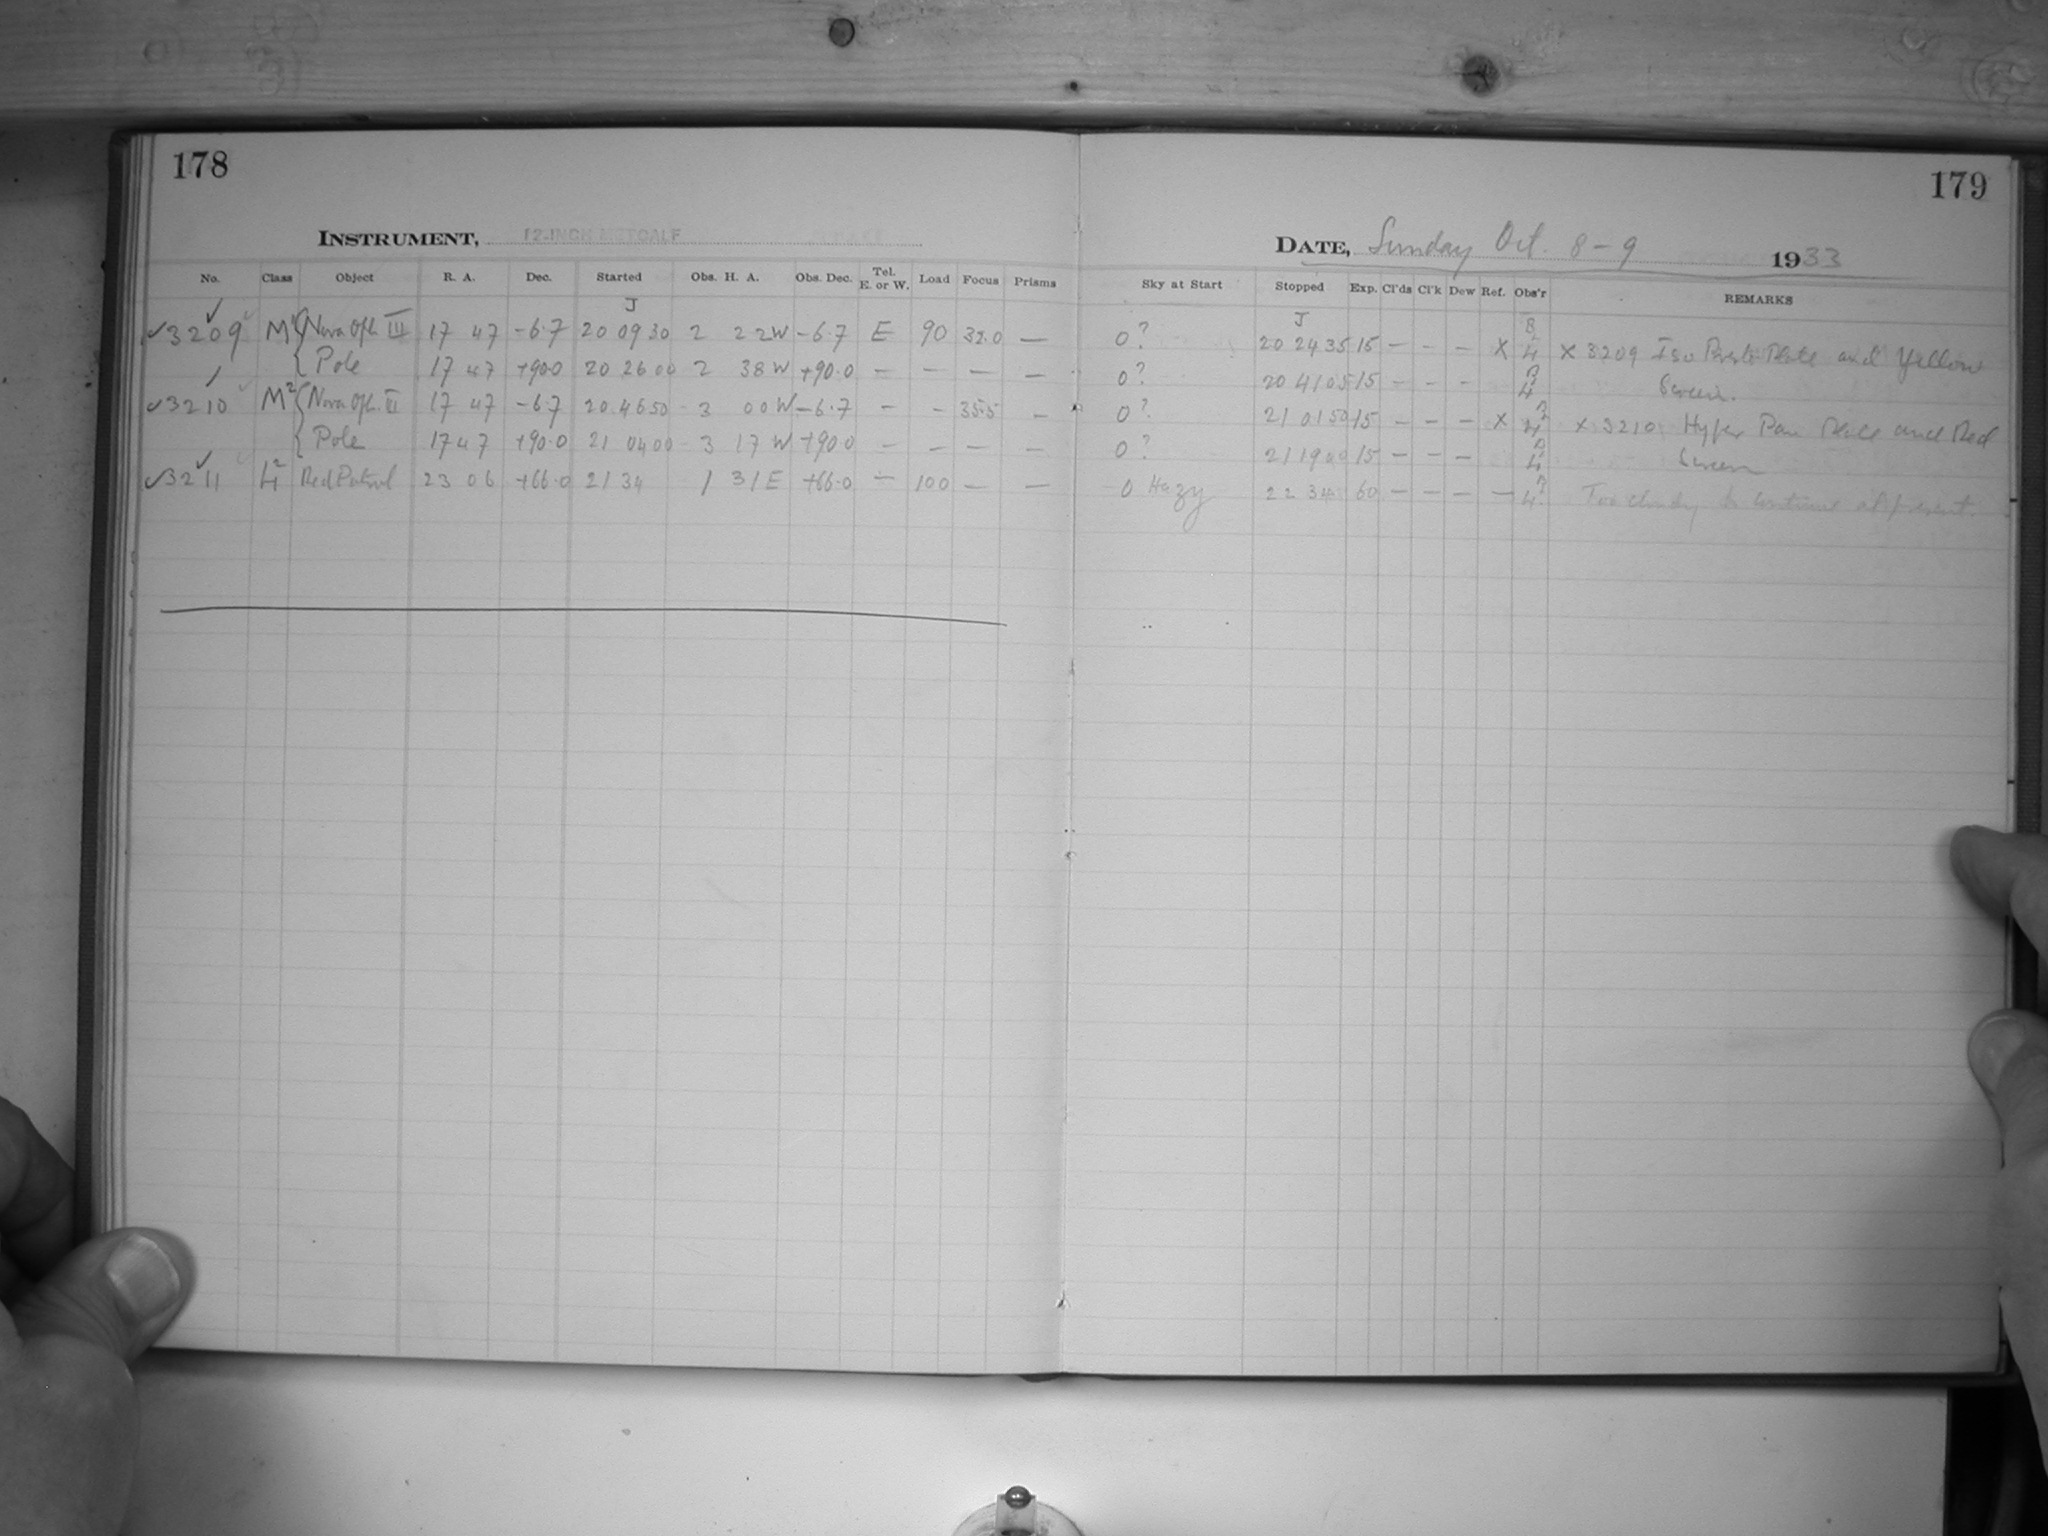 178
179
INSTRUMENT, 12-INCH METCALF
DATE, Sunday Oct. 8-9 1933
No. Class Object R. A. Dec. Started Obs. H. A. Obs. Dec. Tel. E. or W. Load Focus Prisms Sky at Start Stopped Exp. Cl'ds Cl'k Dew Ref. Obs'r REMARKS
J J
✓3209 Nova Oph. III 17 47 -6.7 20 09 30 2 22W -6.7 E 90 — 0? 20 24 35 15 — — — X X 3209 Iso Plate and Yellow
Pole 17 47 +90.0 20 26 00 2 38W +90.0 — — — — 0? 20 41 05 15 — — — Screen.
✓3210 M² Nova Oph. III 17 47 -6.7 20 46 50 3 00W -6.7 — — 35.5 — 0? 21 01 50 15 — — — X X 3210 Hyper Pan Plate and Red
Pole 17 47 +90.0 21 04 00 3 17W +90.0 — — — — 0? 21 19 00 15 — — — Screen
✓3211 Red Patrol 23 06 +66.0 21 34 1 31E +66.0 — 100 — — 0 Hazy 22 34 60 — — — — Too cloudy to continue at present.